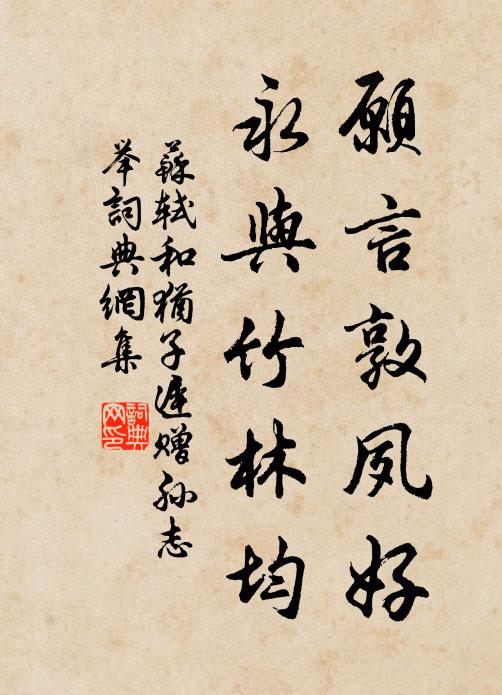 願言敦夙好
永與竹林均
蘇軾和猶子遲贈孫志
举詞典網集
詞典
网印